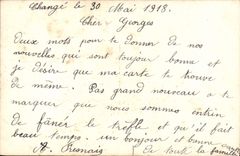 Changé le 30 Mai 1918.
Cher Georges
Deux mots pour te donner de nos
nouvelles qui sont toujour bonne et
je désire que ma carte te trouve
de même. Pas grand nouveau a te
marquer que nous sommes entrin
de fâner le trèfle et qu'il fait
beau temps. un bonjour et bonne
A. Fresnais
de toute la famille